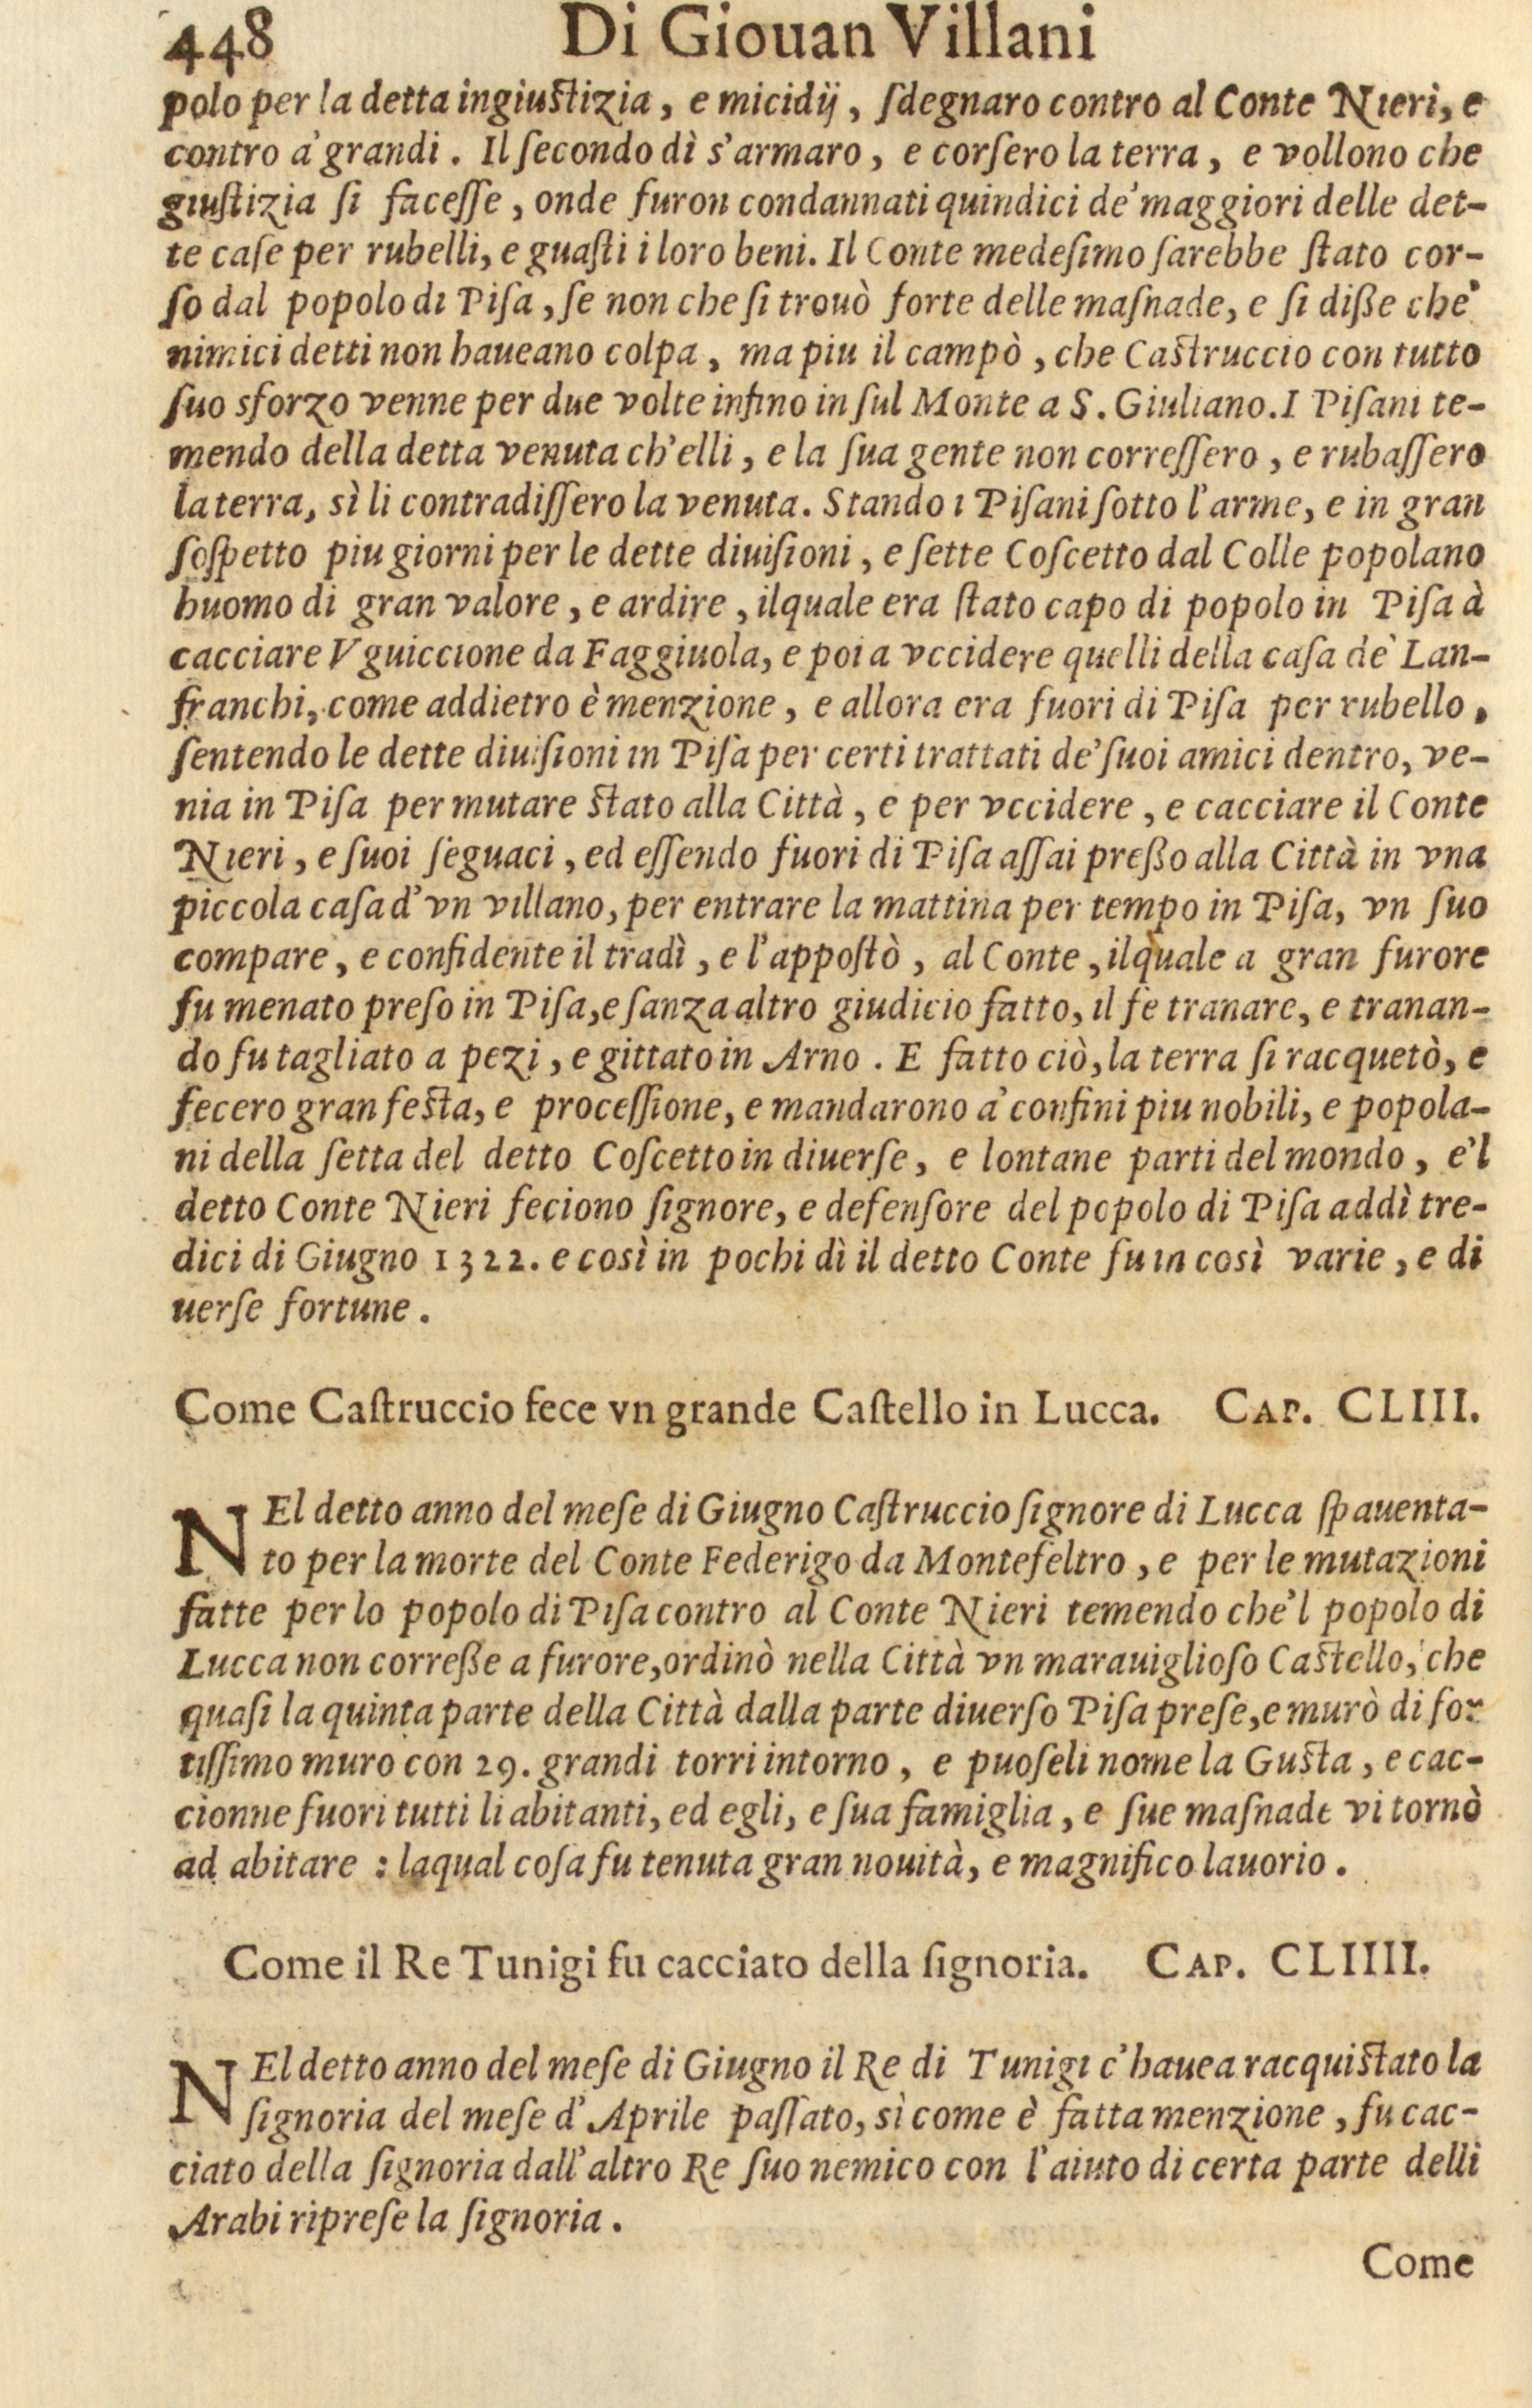 448 Di Giouan Villani
polo per la detta ingiustizia, e micidij, ſdegnaro contro al Conte Nieri, e
contro a' grandi. Il ſecondo dì s'armaro, e corſero la terra, e vollono che
giuſtizia ſi faceſſe, onde furon condannati quindici de' maggiori delle det-
te caſe per rubelli, e guaſti i loro beni. Il Conte medeſimo ſarebbe ſtato cor-
ſo dal popolo di Piſa, ſe non che ſi trouò forte delle maſnade, e ſi diße che'
nimici detti non haueano colpa, ma piu il campò, che Caſtruccio con tutto
ſuo sforzo venne per due volte infino in ſul Monte a S. Giuliano. I Piſani te-
mendo della detta venuta ch'elli, e la ſua gente non correſſero, e rubaſſero
la terra, sì li contradiſſero la venuta. Stando i Piſani ſotto l'arme, e in gran
ſoſpetto piu giorni per le dette diuiſioni, e ſette Coſcetto dal Colle popolano
huomo di gran valore, e ardire, ilquale era ſtato capo di popolo in Piſa à
cacciare Vguiccione da Faggiuola, e poi a vccidere quelli della caſa de' Lan-
franchi, come addietro è menzione, e allora era fuori di Piſa per rubello,
ſentendo le dette diuiſioni in Piſa per certi trattati de' ſuoi amici dentro, ve-
nia in Piſa per mutare ſtato alla Città, e per vccidere, e cacciare il Conte
Nieri, e ſuoi ſeguaci, ed eſſendo fuori di Piſa aſſai preßo alla Città in vna
piccola caſa d'vn villano, per entrare la mattina per tempo in Piſa, vn ſuo
compare, e confidente il tradì, e l'appoſtò, al Conte, ilquale a gran furore
fu menato preſo in Piſa, e ſanza altro giudicio fatto, il fè tranare, e tranan-
do fu tagliato a pezi, e gittato in Arno. E fatto ciò, la terra ſi racquetò, e
fecero gran feſta, e proceſſione, e mandarono a' confini piu nobili, e popola-
ni della ſetta del detto Coſcetto in diuerſe, e lontane parti del mondo, e'l
detto Conte Nieri feciono ſignore, e defenſore del popolo di Piſa addì tre-
dici di Giugno 1322. e così in pochi dì il detto Conte fu in così varie, e di
uerſe fortune.
Come Caſtruccio fece vn grande Caſtello in Lucca. CAP. CLIII.
NEl detto anno del meſe di Giugno Caſtruccio ſignore di Lucca ſpauenta-
to per la morte del Conte Federigo da Montefeltro, e per le mutazioni
fatte per lo popolo di Piſa contro al Conte Nieri temendo che'l popolo di
Lucca non correße a furore, ordinò nella Città vn marauiglioſo Caſtello, che
quaſi la quinta parte della Città dalla parte diuerſo Piſa preſe, e murò di for
tiſſimo muro con 29. grandi torri intorno, e puoſeli nome la Guſta, e cac-
cionne fuori tutti li abitanti, ed egli, e ſua famiglia, e ſue maſnade vi tornò
ad abitare : laqual coſa fu tenuta gran nouità, e magnifico lauorio.
Come il Re Tunigi fu cacciato della ſignoria. CAP. CLIIII.
NEl detto anno del meſe di Giugno il Re di Tunigi c'hauea racquiſtato la
ſignoria del meſe d'Aprile paſſato, sì come è fatta menzione, fu cac-
ciato della ſignoria dall'altro Re ſuo nemico con l'aiuto di certa parte delli
Arabi ripreſe la ſignoria.
Come